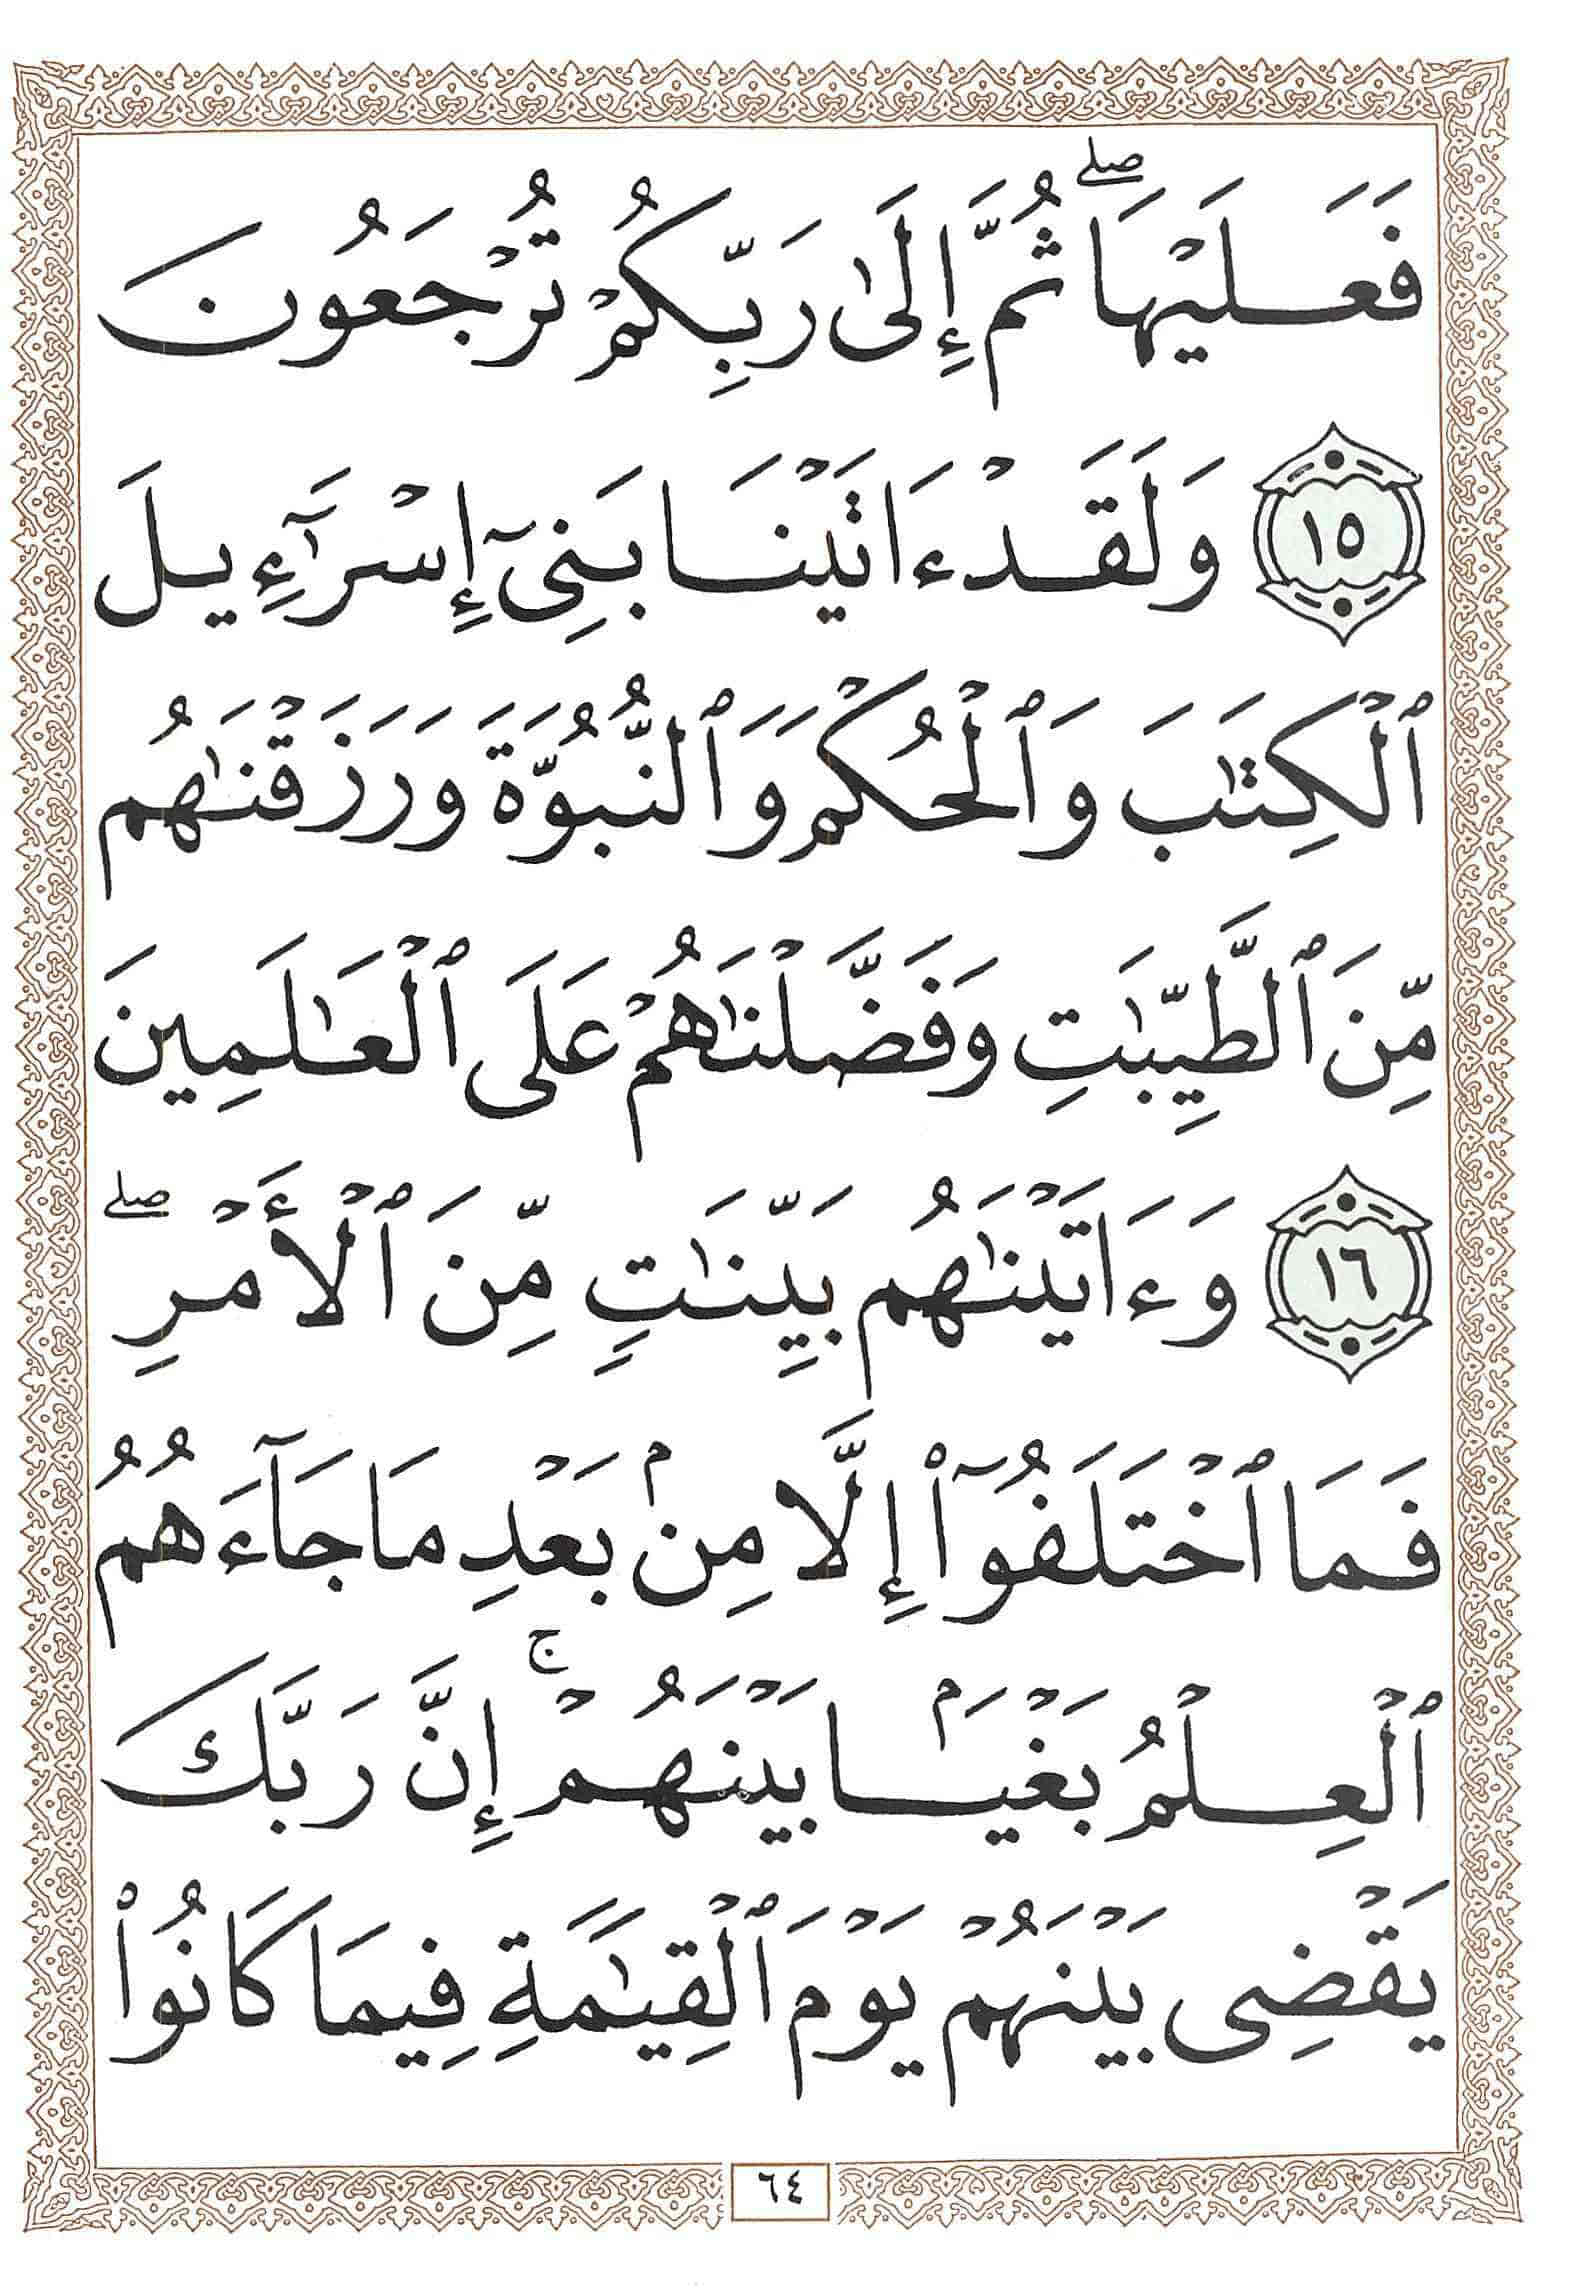 فَعَلَيْهَا ۖ ثُمَّ إِلَىٰ رَبِّكُمْ تُرْجَعُونَ
١٥ وَلَقَدْ ءَاتَيْنَا بَنِىٓ إِسْرَٰٓءِيلَ
ٱلْكِتَـٰبَ وَٱلْحُكْمَ وَٱلنُّبُوَّةَ وَرَزَقْنَـٰهُم
مِّنَ ٱلطَّيِّبَـٰتِ وَفَضَّلْنَـٰهُمْ عَلَى ٱلْعَـٰلَمِينَ
١٦ وَءَاتَيْنَـٰهُم بَيِّنَـٰتٍ مِّنَ ٱلْأَمْرِ ۖ
فَمَا ٱخْتَلَفُوٓا۟ إِلَّا مِنۢ بَعْدِ مَا جَآءَهُمُ
ٱلْعِلْمُ بَغْيَۢا بَيْنَهُمْ ۚ إِنَّ رَبَّكَ
يَقْضِى بَيْنَهُمْ يَوْمَ ٱلْقِيَـٰمَةِ فِيمَا كَانُوا۟
٦٤